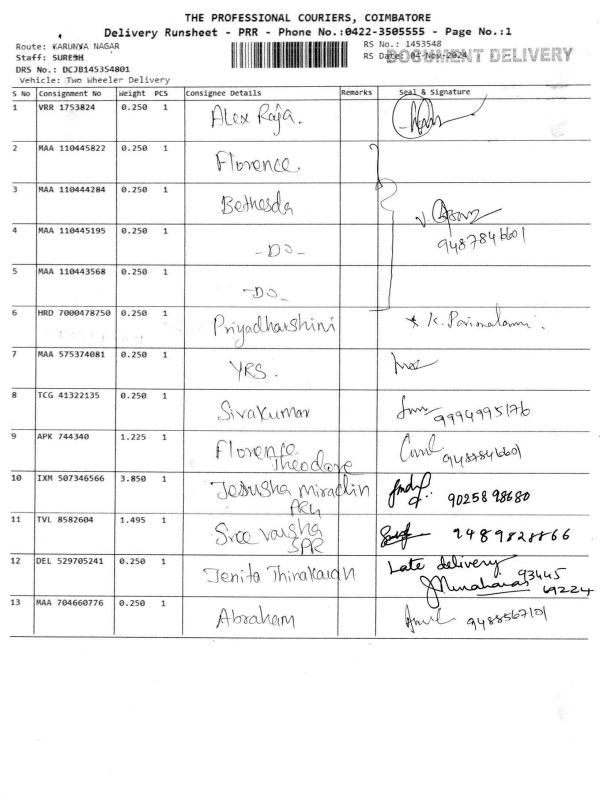 THE PROFESSIONAL COURIERS, COIMBATORE
Delivery Runsheet - PRR - Phone No.:0422-3505555 - Page No.:1
Route: KARUNYA NAGAR
RS No.: 1453548
Staff: SURESH
RS Date: 04-Nov-2024
DOCUMENT DELIVERY
DRS No.: DCJB145354801
Vehicle: Two Wheeler Delivery
S No Consignment No Weight PCS Consignee Details Remarks Seal & Signature
1 VRR 1753824 0.250 1 Alex Raja.
2 MAA 110445822 0.250 1 Florence.
3 MAA 110444284 0.250 1 Bethesda
9487846601
4 MAA 110445195 0.250 1 -DO-
5 MAA 110443568 0.250 1 -DO-
6 HRD 7000478750 0.250 1 Priyadharshini
7 MAA 575374081 0.250 1 YRS.
8 TCG 41322135 0.250 1 Sivakumar 9994995176
9 APK 744340 1.225 1 Florence Theodore 9487846601
10 IXM 507346566 3.850 1 Jesusha miraclin 9025898680
11 TVL 8582604 1.495 1 Sree varsha SPR 9489828866
12 DEL 529705241 0.250 1 Jenita Thirakaran Late delivery
93445
69224
13 MAA 704660776 0.250 1 Abraham 9488567101